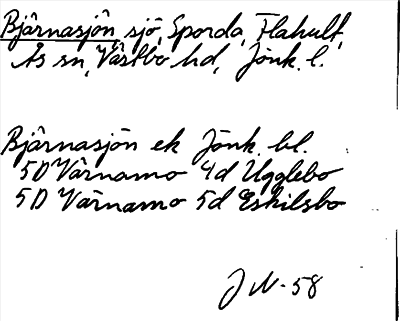 Bjärnasjön sjö, Sporda, Flahult,
Ås sn, Västbo hd, Jönk. l.
Bjärnasjön ek Jönk. bl.
5D Värnamo 4d Ugglebo
5D Värnamo 5d Eskilsbo
JN-58